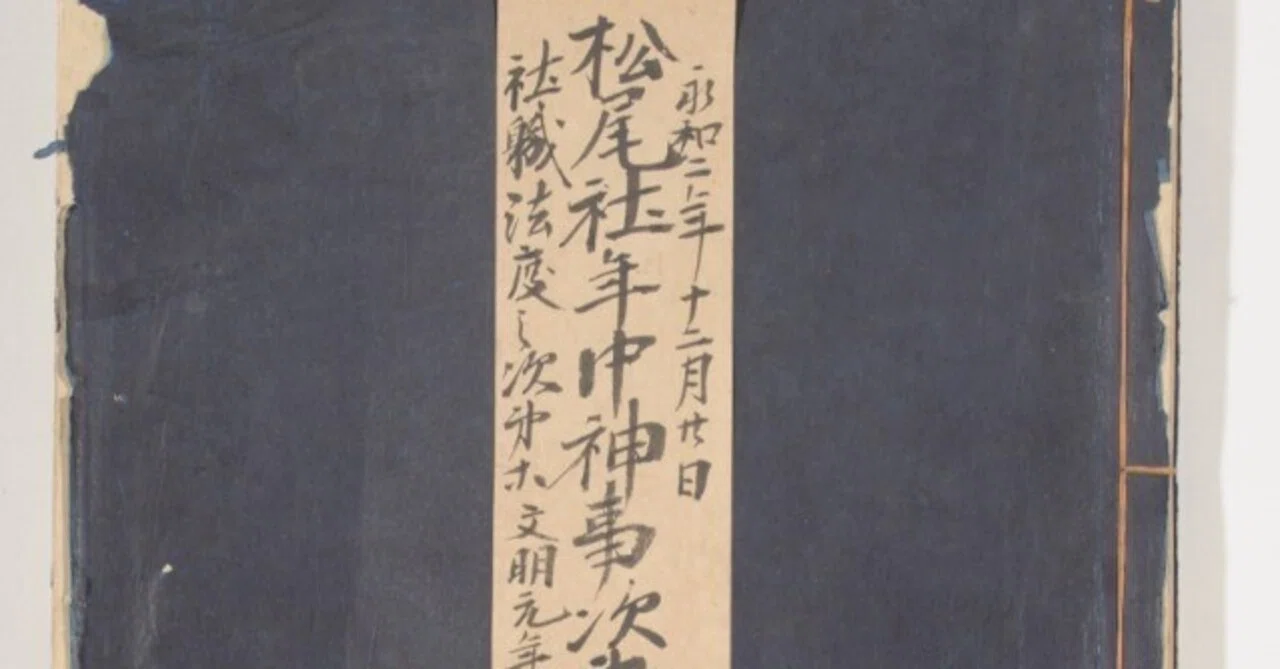 永和二年十二月廿日
松尾社年中神事次
社職法度之次第木文明元年